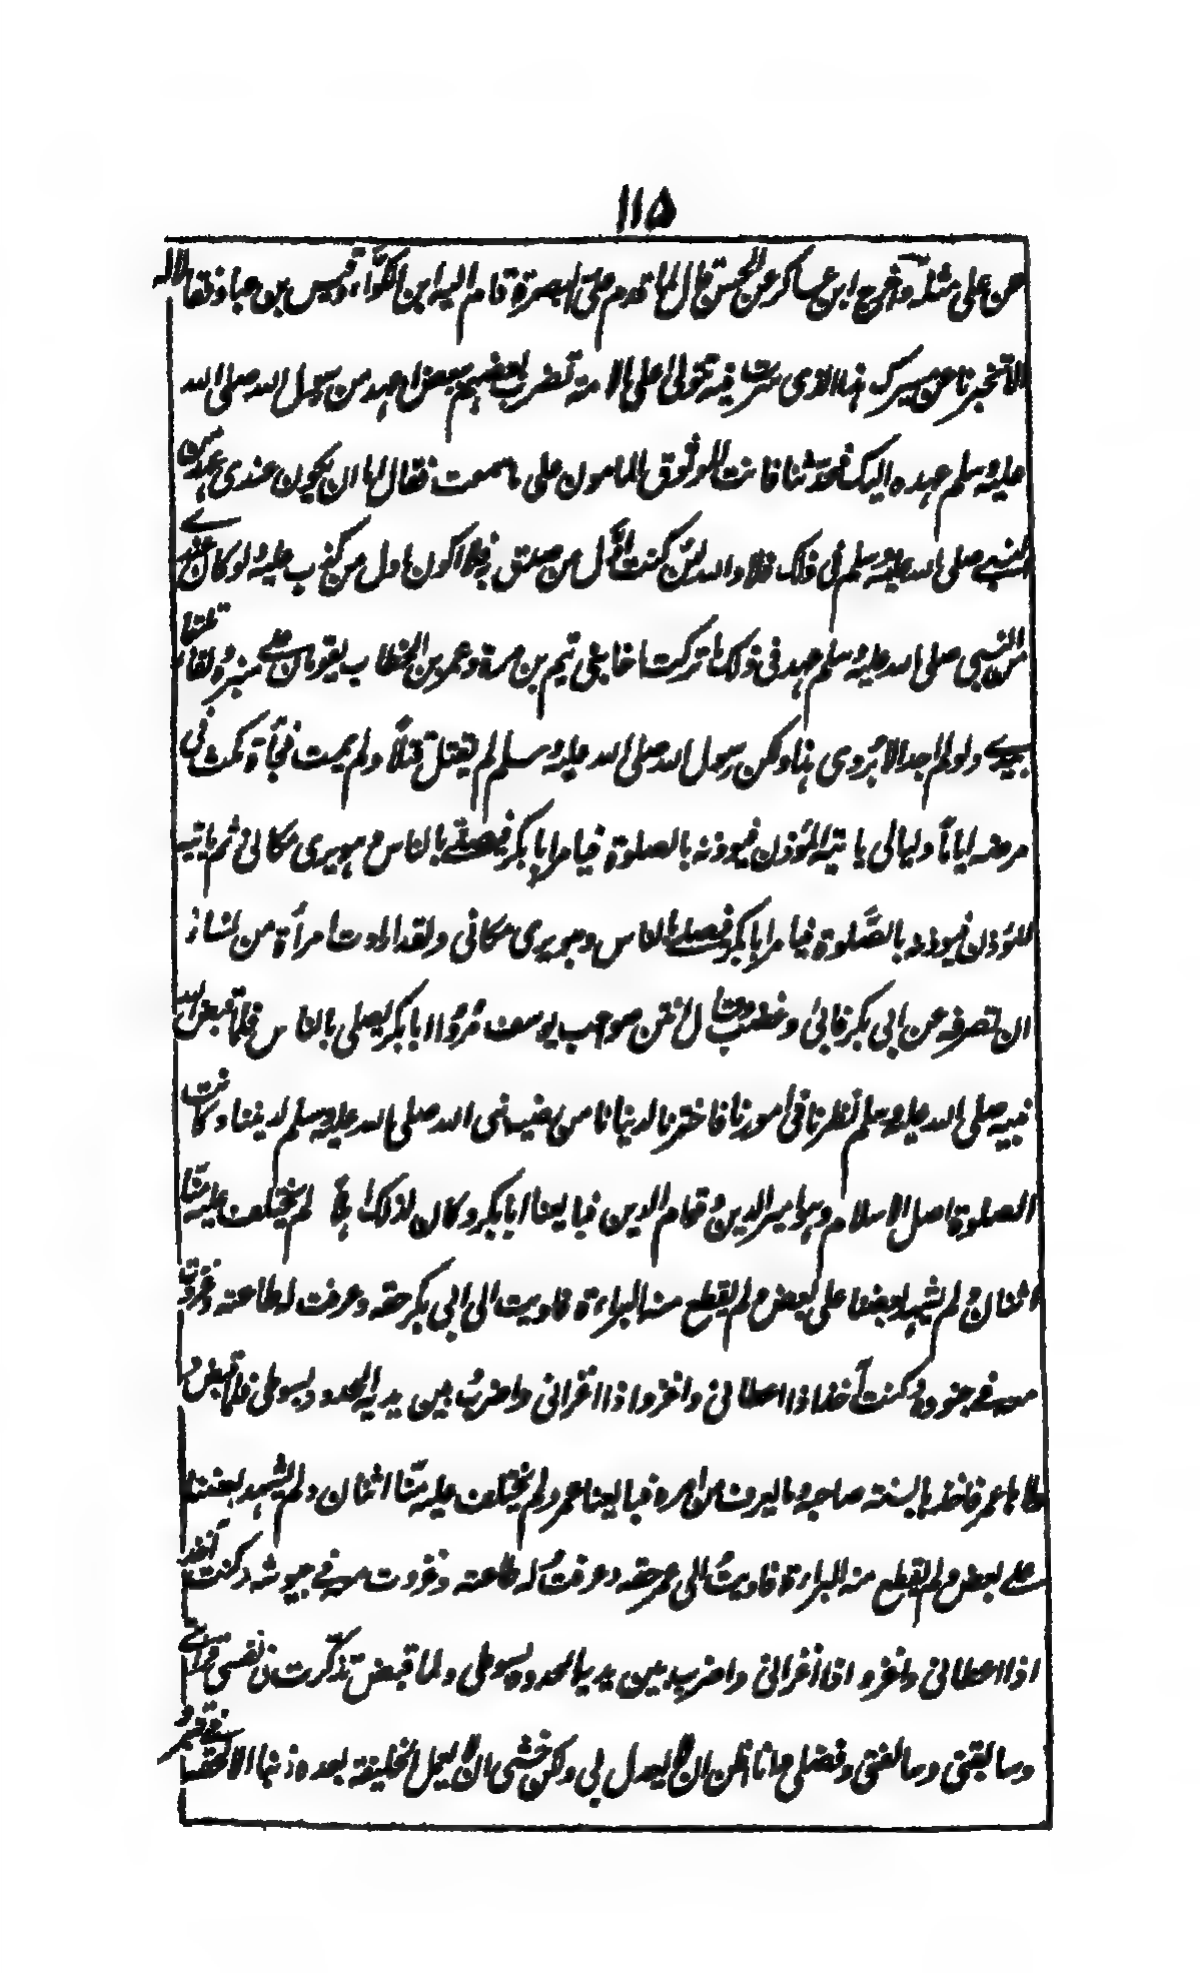 ١١٥
عن علی مثله واخرج ابن عساکر عن الحسن قال لما قدم علی البصرة قام الیه ابن الکوّاء وقیس بن عباد فقالا له
الا تخبرنا عن مسیرک هذا الذی سرت فیه تتولی علی الامة تضرب بعضهم ببعض اعهد من رسول الله صلی الله
علیه وسلم عهده الیک فحدثنا فانت الموثوق المامون علی ما سمعت فقال اما ان یکون عندی عهد من
النبی صلی الله علیه وسلم فی ذلک فلا والله لئن کنت اوّل من صدق به فلا اکون اول من کذب علیه لو کان عندی
من النبی صلی الله علیه وسلم عهد فی ذلک ما ترکت اخا بنی تیم بن مرة وعمر بن الخطاب یقومان علی منبره ولقاتلتهما
بیدی ولو لم اجد الا بُردی هذا ولکن رسول الله صلی الله علیه وسلم لم یقتل قتلاً ولم یمت فجأة مکث فی
مرضه ایاماً ولیالی یاتیه المؤذن فیوذنه بالصلوة فیامر ابا بکر فیصلی بالناس وهو یری مکانی ثم یاتیه
المؤذن فیوذنه بالصّلوة فیامر ابا بکر فیصلی بالناس وهو یری مکانی ولقد ارادت امرأة من نسائه
ان تصرفه عن ابی بکر فابیٰ وغضب وقال انتن صواحب یوسف مُرُوا ابا بکر یصلی بالناس فلما قبض الله
نبیه صلی الله علیه وسلم نظرنا فی امورنا فاخترنا لدنیانا من رضیه نبی الله صلی الله علیه وسلم لدیننا وکانت
الصلوة اصل الاسلام وهو امیر الدین وقوام الدین فبایعنا ابا بکر وکان لذلک اهلاً لم یختلف علیه منّا
اثنان ولم یشهد بعضنا علی بعض ولم یقطع منه البراءة فادیت الی ابی بکر حقه وعرفت له طاعته وغزوت
معه فی جنوده وکنت آخذ اذا اعطانی واغزو اذا اغزانی واضربُ بین یدیه الحدود بسوطی فلما قبض
ولاها عمر فاخذها بسنة صاحبه وما یعرف من امره فبایعنا عمر ولم یختلف علیه منّا اثنان ولم یشهد بعضنا
علی بعض ولم یقطع منه البراءة فادیتُ الی عمر حقه وعرفتُ له طاعته وغزوت معه فی جیوشه وکنت آخذ
اذا اعطانی واغزو اذا اغزانی واضرب بین یدیه الحدود بسوطی ولما قبض تذکّرت فی نفسی قرابتی
وسابقتی وسالفتی وفضلی وانا اظن ان لا یعدل بی ولکن خشی ان لا یعمل الخلیفة بعده ذنبا الا لحقه فی قبره